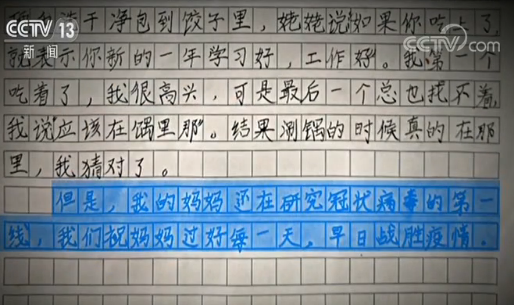 CCTV 13
新闻
CCTV.com
洗干净包到饺子里，姥姥说如果你吃上了
就表示你新的一年学习好，工作好。我第一个
吃着了，我很高兴，可是最后一个总也找不着，
我说“应该在锅里那”。结果涮锅的时候真的在那
里，我猜对了。
但是，我的妈妈还在研究冠状病毒的第一
线，我们祝妈妈过好每一天，早日战胜疫情。